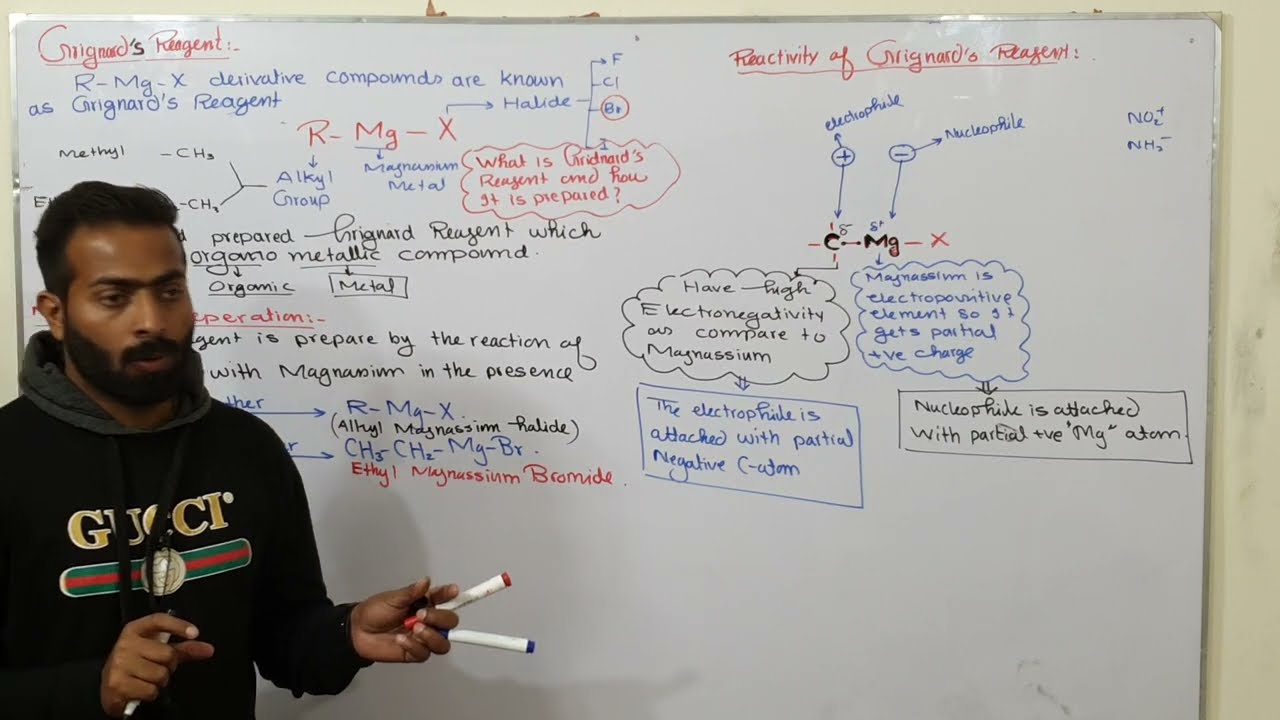 Grignard's Reagent:-
R-Mg-X derivative compounds are known
as Grignard's Reagent
R- Mg - X
Halide
F
Cl
Br
I
Methyl -CH3
-CH2
Alkyl
Group
Magnanium
Metal
What is Gridnard's
Reagent and how
It is prepared?
prepared Grignard Reagent which
organo metallic compound.
Organic
Metal
eperation:-
gent is prepare by the reaction of
with Magnanium in the presence
ther
R-Mg-X.
(Alhyl Magnassium halide)
CH3-CH2-Mg-Br.
Ethyl Magnassium Bromide.
Reactivity of Grignard's Reagent:
electrophile
+
Nucleophile
-
NO2+
NH2-
δ- δ+
- C - Mg - X
Have high
Electronegativity
as compare to
Magnassium
Magnassium is
electropositive
element so It
gets partial
+ve charge
The electrophile is
attached with partial
Negative C-atom
Nucleophile is attached
with partial +ve "Mg" atom
GUCCI